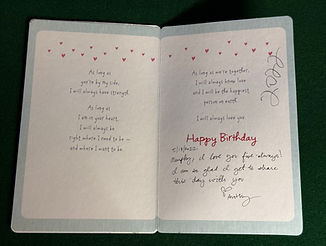 As long as
you're by my side,
I will always have strength.
As long as
I am in your heart,
I will always be
right where I need to be —
and where I want to be.
As long as we're together,
I will always know love
and I will be the happiest
person on earth.
I will always love you.
Happy Birthday
I love you five always!
I am so glad I get to share
this day with you